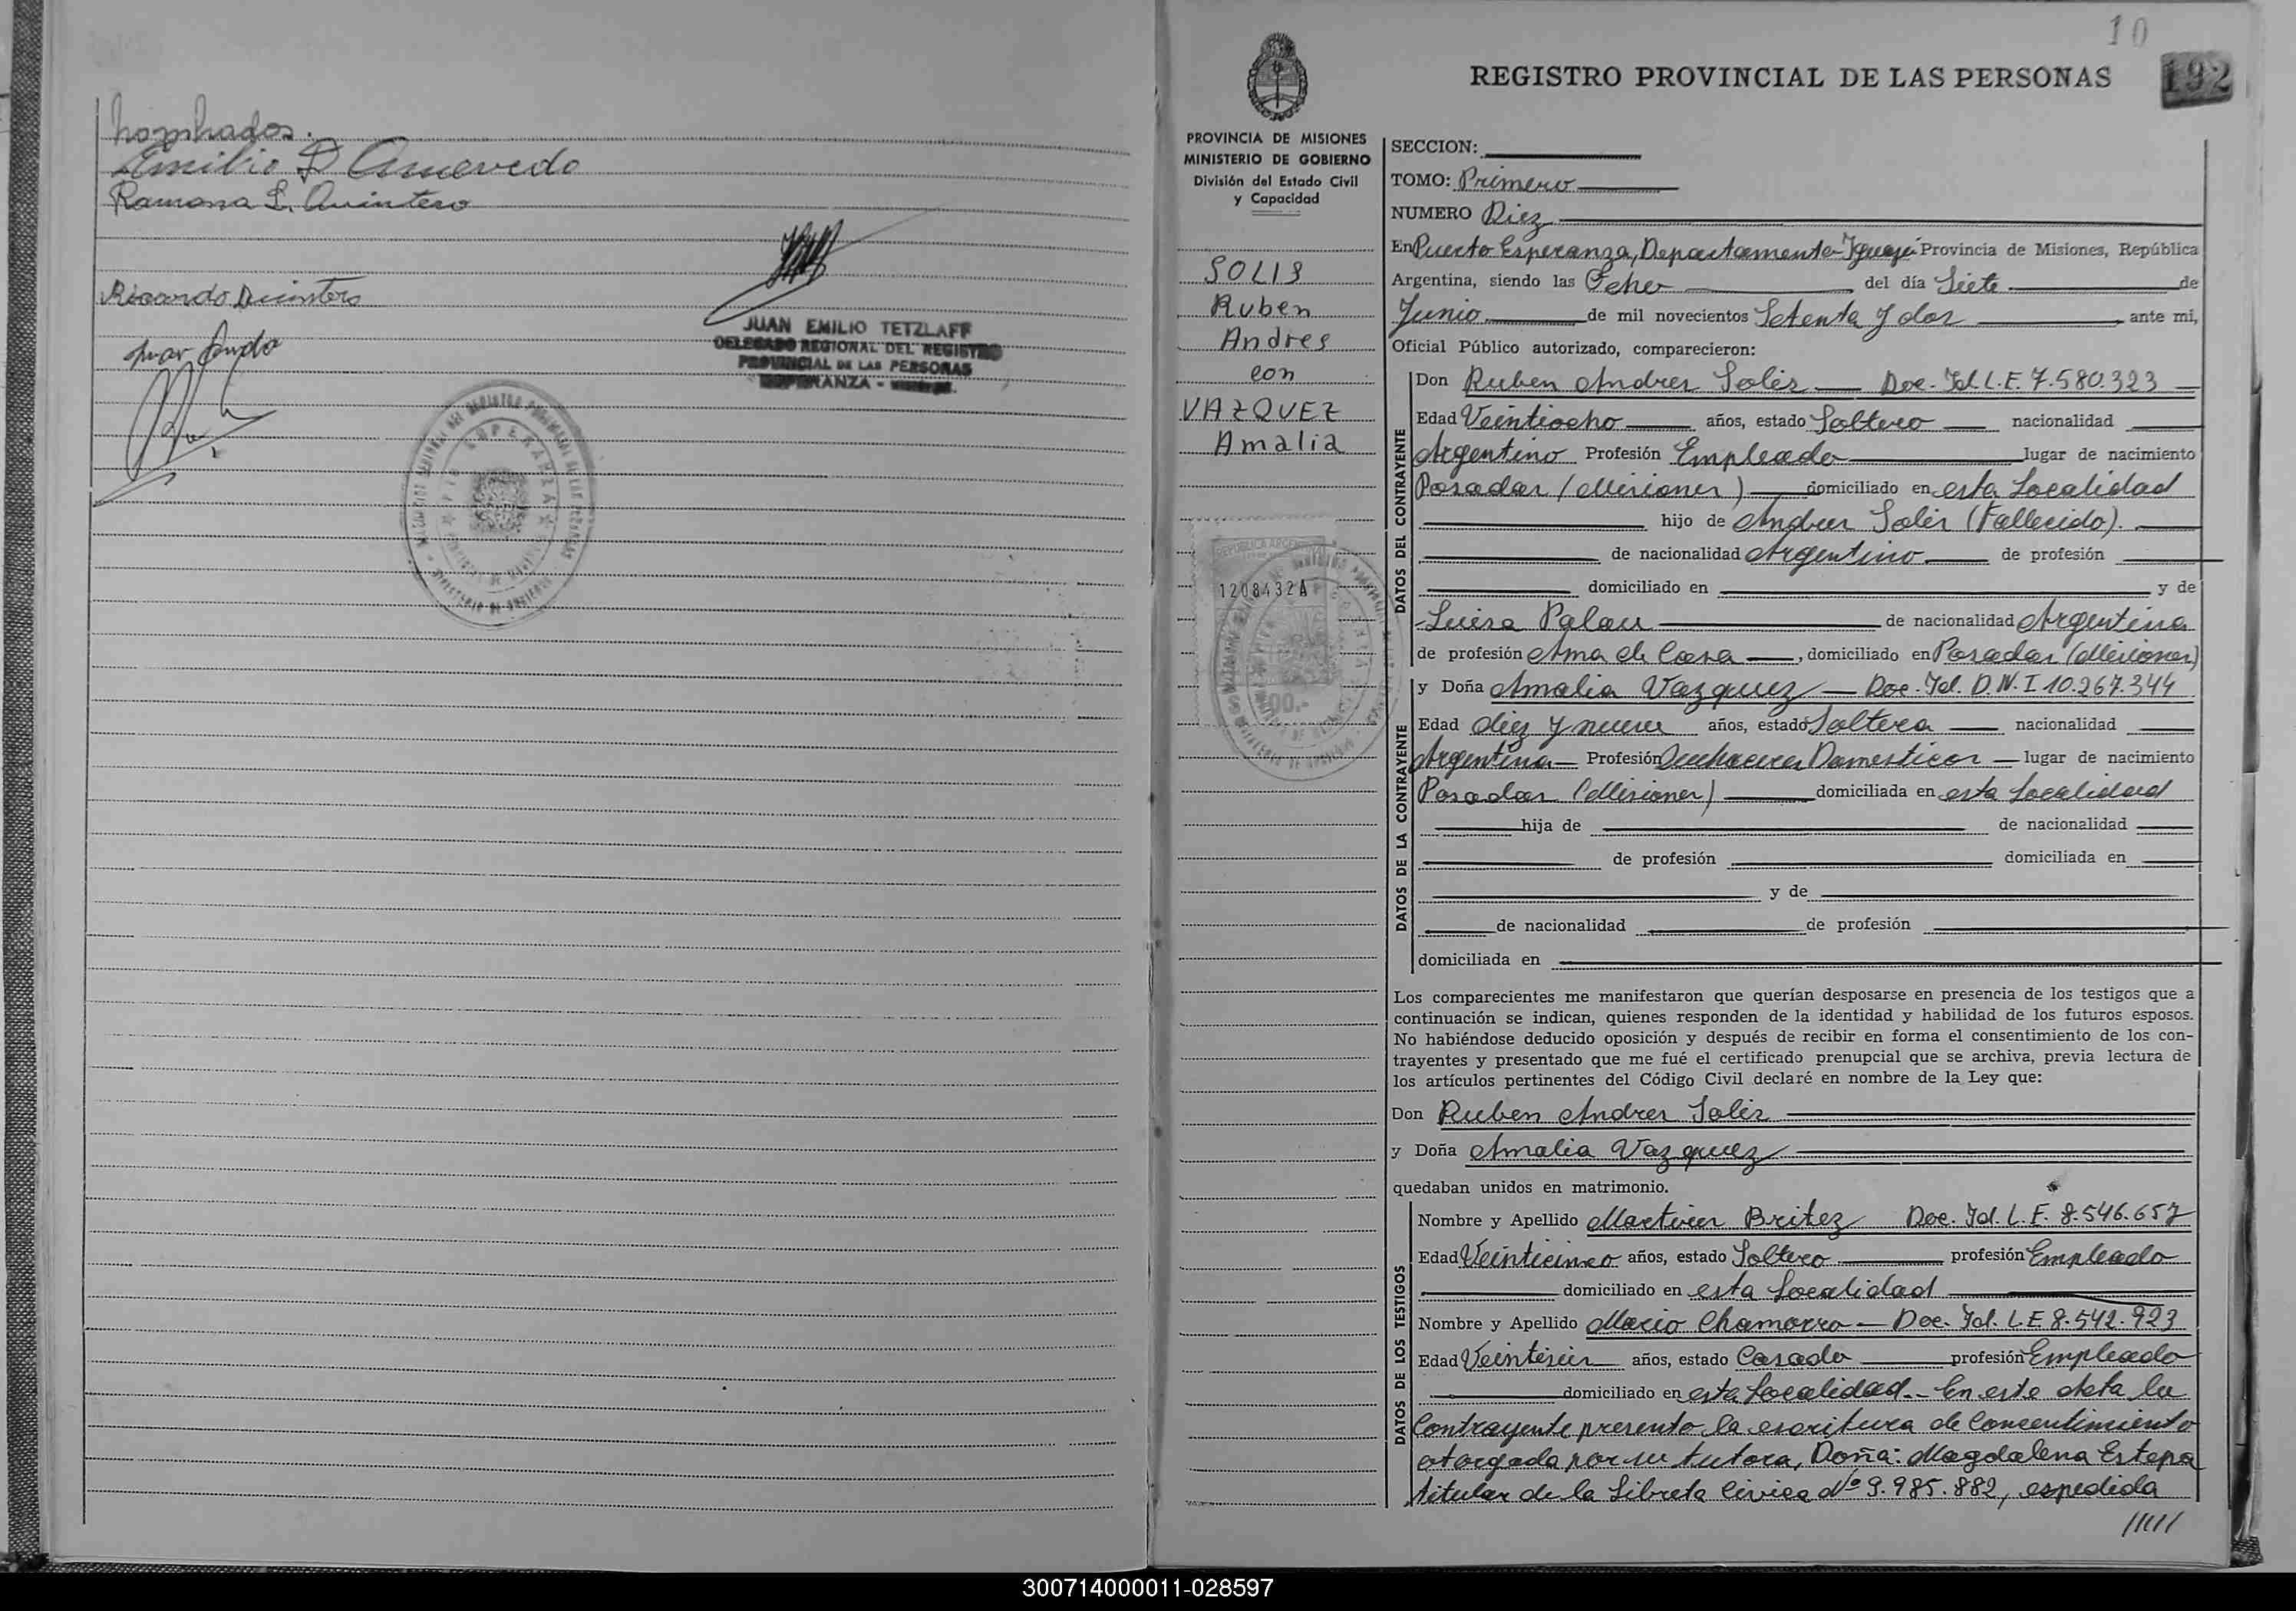 nombrados.
Emilio D Amevedo
Ramona L. Quintero
Ricardo Quintero
JUAN EMILIO TETZLAFF
DELEGADO REGIONAL DEL REGISTRO
PROVINCIAL DE LAS PERSONAS
10
192
REGISTRO PROVINCIAL DE LAS PERSONAS
PROVINCIA DE MISIONES
MINISTERIO DE GOBIERNO
División del Estado Civil
y Capacidad
SOLIS
Ruben
Andres
con
VAZQUEZ
Amalia
1208432A
SECCION:
TOMO: Primero
NUMERO Diez
En Puerto Esperanza, Departamento Iguazú Provincia de Misiones, República
Argentina, siendo las Ocho del día Siete de
Junio de mil novecientos Setenta y dos ante mi,
Oficial Público autorizado, comparecieron:
DATOS DEL CONTRAYENTE
Don Ruben Andres Solis — Doc. Id. L.E. 7.580.323
Edad Veintiocho años, estado Soltero nacionalidad
Argentino Profesión Empleado lugar de nacimiento
Posadas (Misiones) domiciliado en esta Localidad
hijo de Andres Solis (Fallecido).
de nacionalidad Argentino de profesión
domiciliado en y de
Luisa Palau de nacionalidad Argentina
de profesión Ama de Casa, domiciliado en Posadas (Misiones)
DATOS DE LA CONTRAYENTE
y Doña Amalia Vazquez — Doc. Id. D.N.I 10.267.344
Edad diez y nueve años, estado Soltera nacionalidad
Argentina Profesión Quehaceres Domesticos lugar de nacimiento
Posadas (Misiones) domiciliada en esta Localidad
hija de de nacionalidad
de profesión domiciliada en
y de
de nacionalidad de profesión
domiciliada en
Los comparecientes me manifestaron que querían desposarse en presencia de los testigos que a
continuación se indican, quienes responden de la identidad y habilidad de los futuros esposos.
No habiéndose deducido oposición y después de recibir en forma el consentimiento de los con-
trayentes y presentado que me fué el certificado prenupcial que se archiva, previa lectura de
los artículos pertinentes del Código Civil declaré en nombre de la Ley que:
Don Ruben Andres Solis
y Doña Amalia Vazquez
quedaban unidos en matrimonio.
DATOS DE LOS TESTIGOS
Nombre y Apellido Martires Britez Doc. Id. L.E. 8.546.657
Edad Veinticinco años, estado Soltero profesión Empleado
domiciliado en esta Localidad
Nombre y Apellido Mario Chamorro — Doc. Id. L.E 8.542.923
Edad Veintiseis años, estado Casado profesión Empleado
domiciliado en esta Localidad.- En este Acta la
Contrayente presento la escritura de Concentimiento
otorgada por su tutora, Doña: Magdalena Estepa
titular de la Libreta Civica Nº 9.985.882, espedida
//////
300714000011-028597